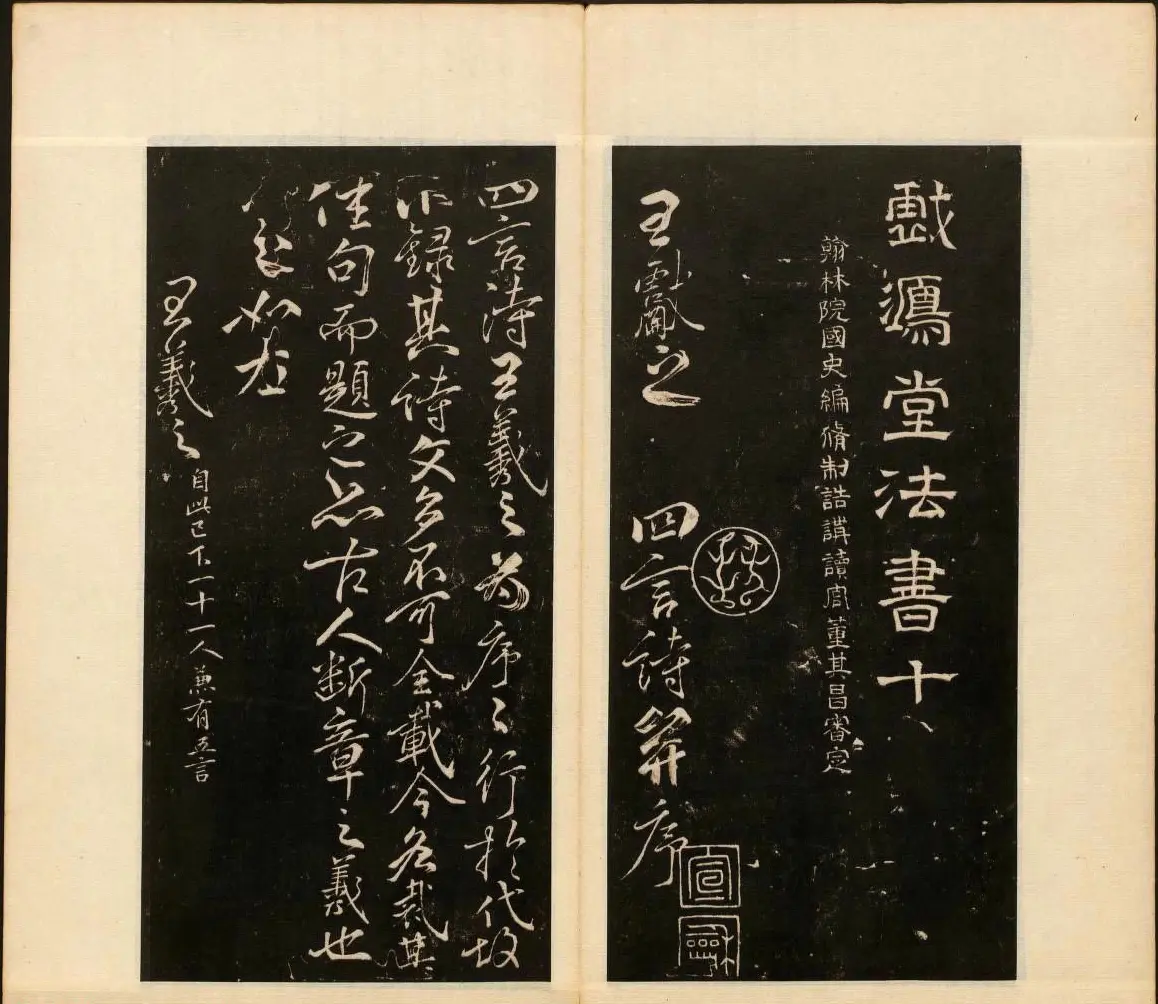 戲鴻堂法書十
翰林院國史編脩制誥講讀官董其昌審定
王獻之 四言詩并序
宣龢
四言詩王羲之為序〻行於代故
不錄其詩文多不可全載今各裁其
佳句而題之亦古人斷章之義也
如左
王羲之 自此已下一十一人兼有五言